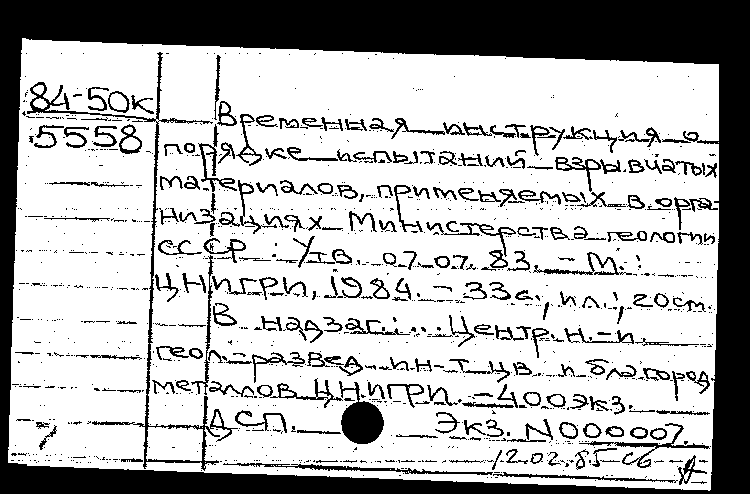 84-50к
5558
Временная инструкция о
порядке испытаний взрывчатых
материалов, применяемых в орга-
низациях Министерства геологии
СССР : Утв. 07.07.83. - М. :
ЦНИГРИ, 1984. - 33с., ил.; 20см.
В надзаг.: ... Центр. н.-и.
геол.-развед. ин-т цв. и благород.
металлов ЦНИГРИ. - 400экз.
ДСП. Экз. N000007.
12.02.85